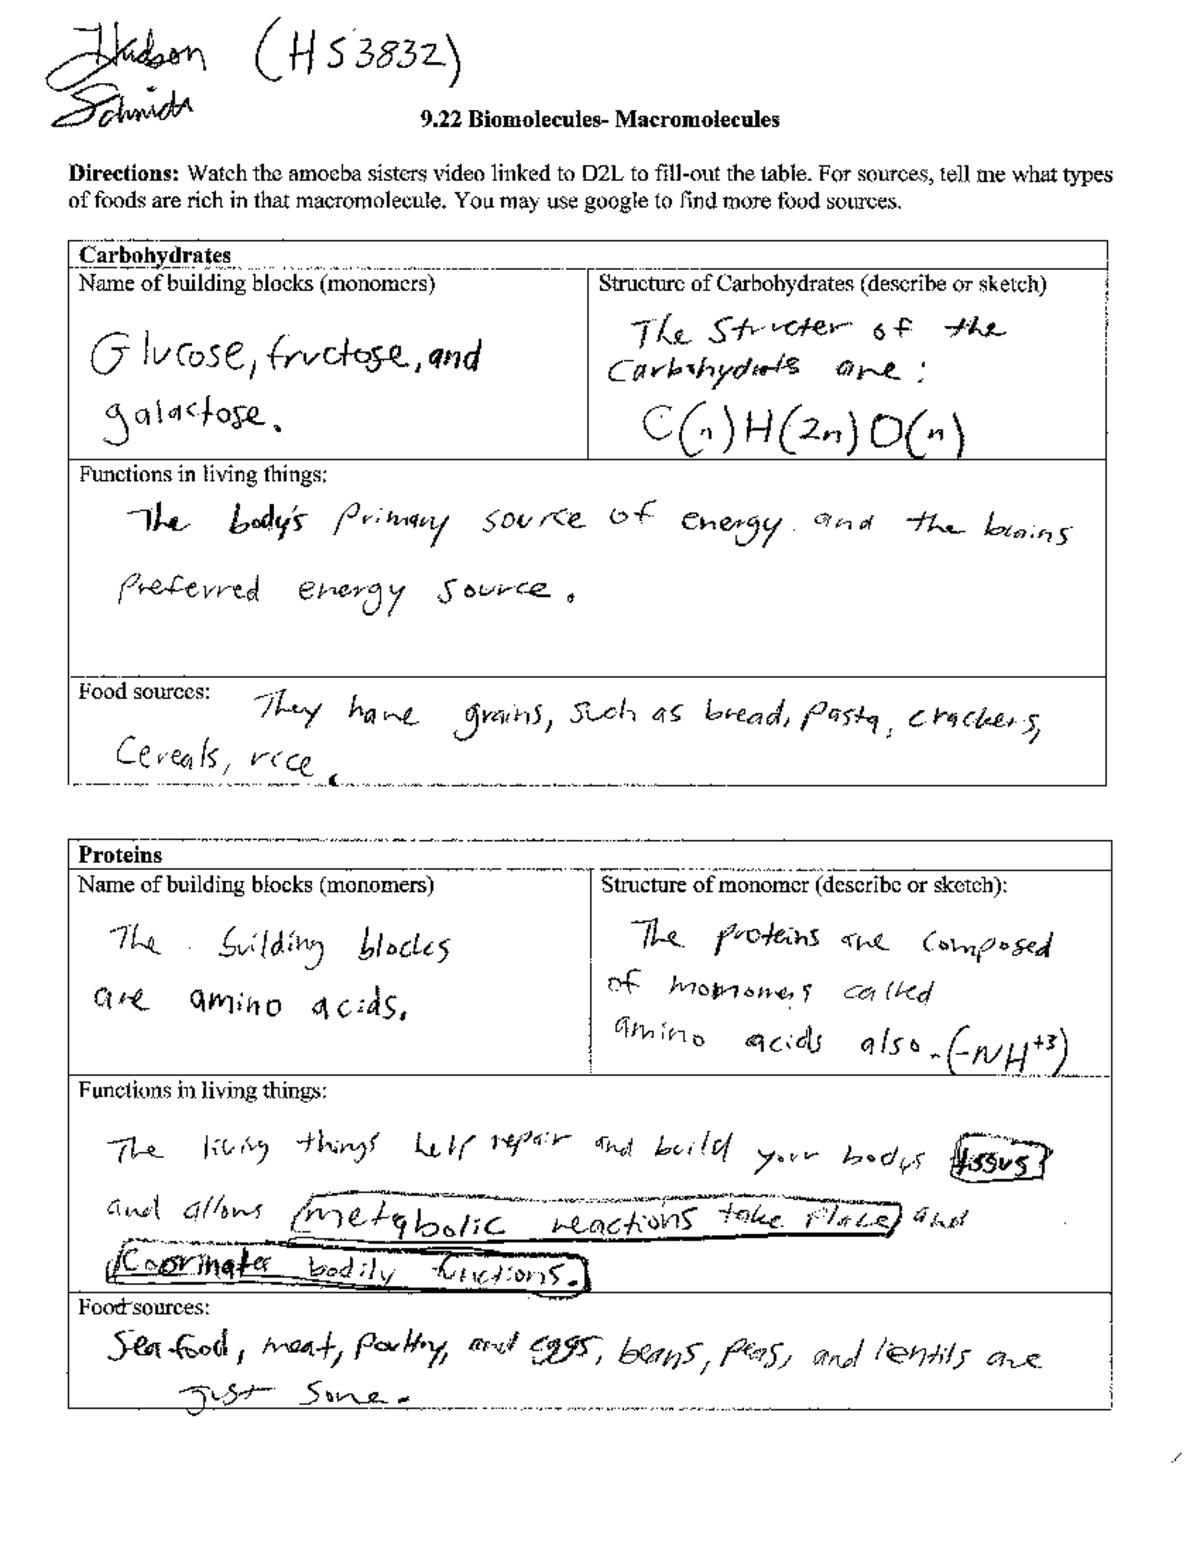 Hudson (HS3832)
Schmidt
9.22 Biomolecules- Macromolecules
Directions: Watch the amoeba sisters video linked to D2L to fill-out the table. For sources, tell me what types
of foods are rich in that macromolecule. You may use google to find more food sources.
Carbohydrates
Name of building blocks (monomers)
Glucose, fructose, and
galactose.
Structure of Carbohydrates (describe or sketch)
The Structer of the
Carbohydrats are:
C(n)H(2n)O(n)
Functions in living things:
The body's primary source of energy. and the brains
Preferred energy source.
Food sources: They have grains, such as bread, pasta, crackers,
Cereals, rice.
Proteins
Name of building blocks (monomers)
The building blocks
are amino acids.
Structure of monomer (describe or sketch):
The proteins are composed
of momomers called
amino acids also. (-NH+3)
Functions in living things:
The living things help repair and build your bodys tissus
and allows metabolic reactions take place and
Coorinater bodily functions.
Food sources:
Seafood, meat, poultry, and eggs, beans, peas, and lentils are
just some.